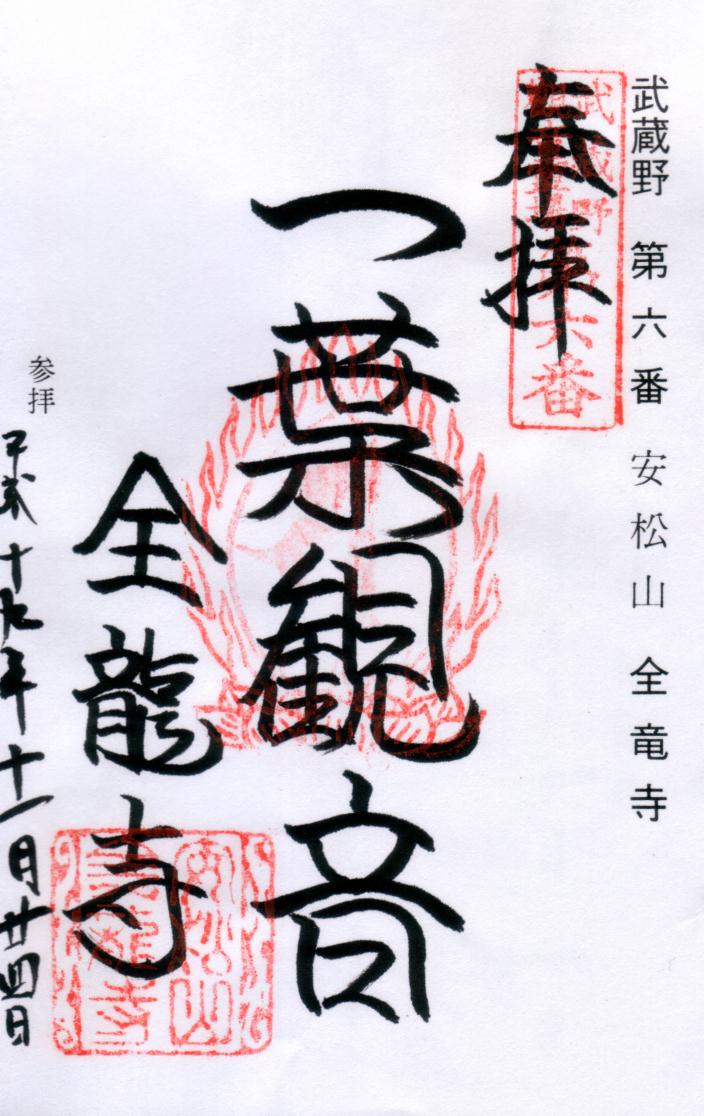 武蔵野 第六番 安松山 全竜寺
奉拝
一葉観音
全龍寺
参拝
平成十九年十一月廿四日